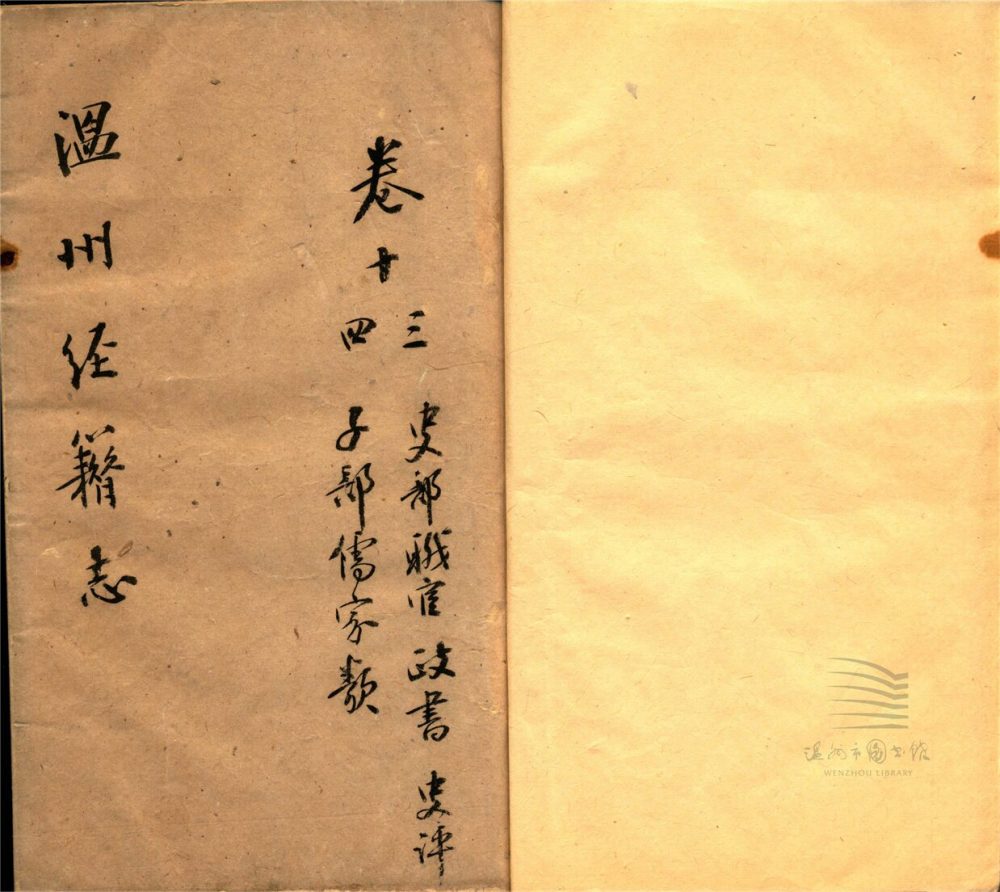 卷十
三 史部職官 政書 史評
四 子部儒家類
溫州经籍志
温州市图书馆
WENZHOU LIBRARY